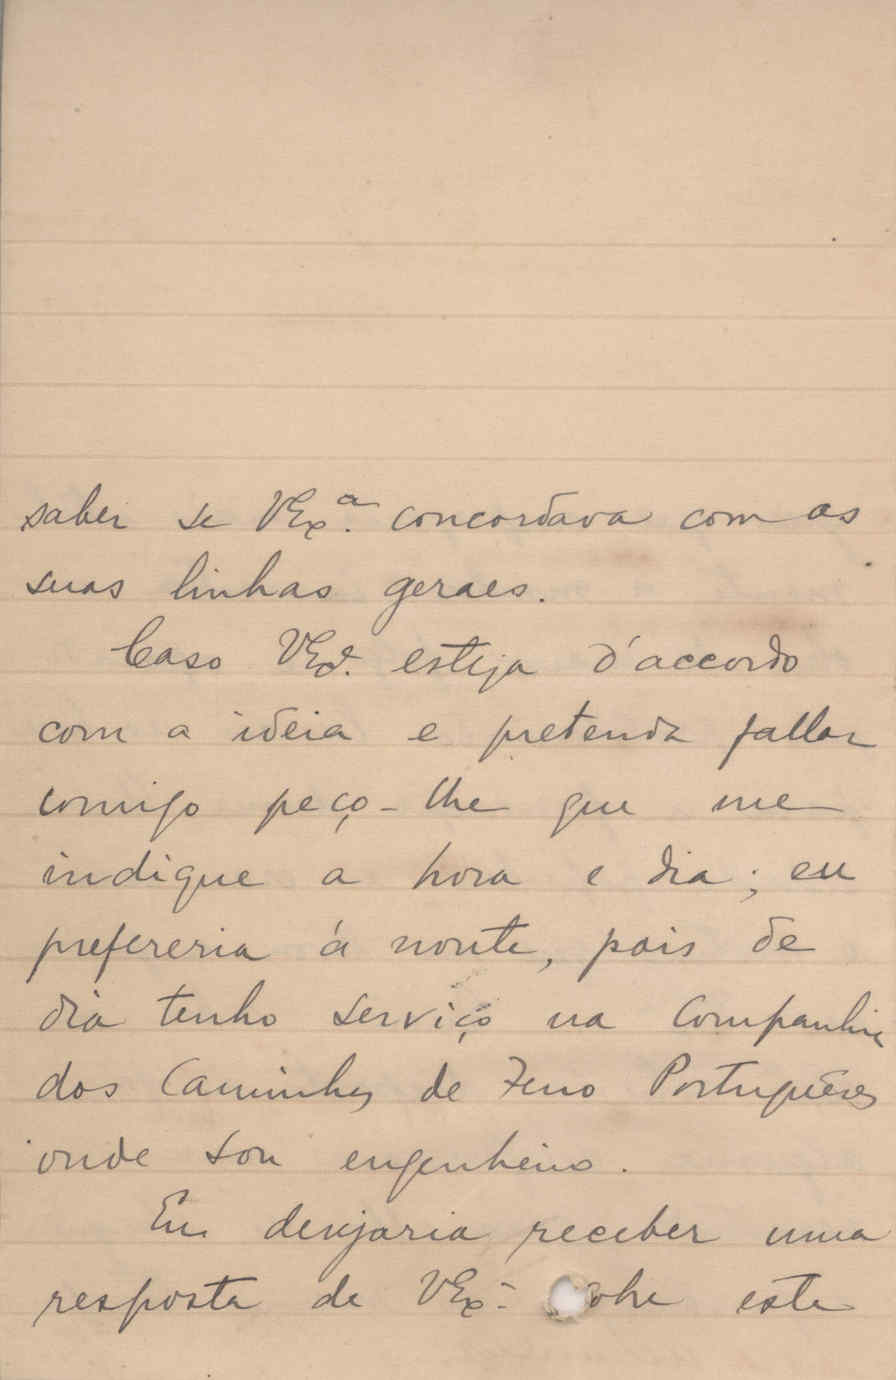 saber se VExª. concordava com as
suas linhas geraes.
Caso VExª. esteja d'accordo
com a idéia e pretenda fallar
comigo peço-lhe que me
indique a hora e dia; eu
prefereria á noute, pois de
dia tenho serviço na Companhia
dos Caminhos de Ferro Portuguêses
onde sou engenheiro.
Eu desejaria receber uma
resposta de VExª. sobre este